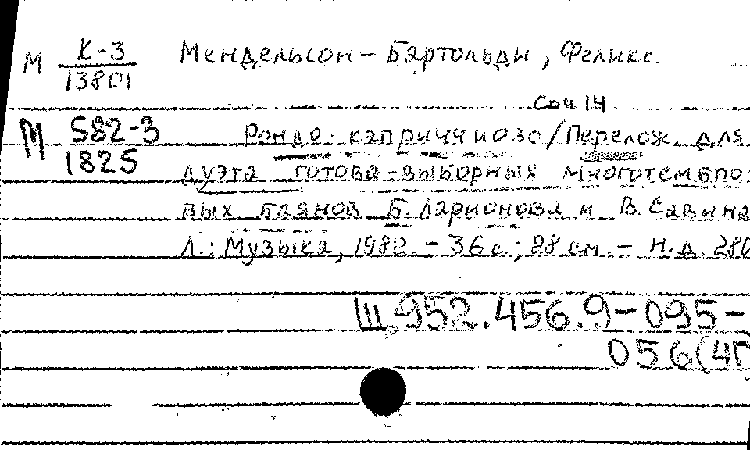 М К-3 Мендельсон-Бартольди, Феликс.
13801
Соч 14
М 582-3 Рондо-каприччиозо/Перелож. для
1825 дуэта готово-выборных многотембро-
вых баянов Б. Ларионова и В. Савина
Л.: Музыка, 1982. - 36 с.; 28 см. - Н.д.
Ш 952.456.9-095-
056(4П